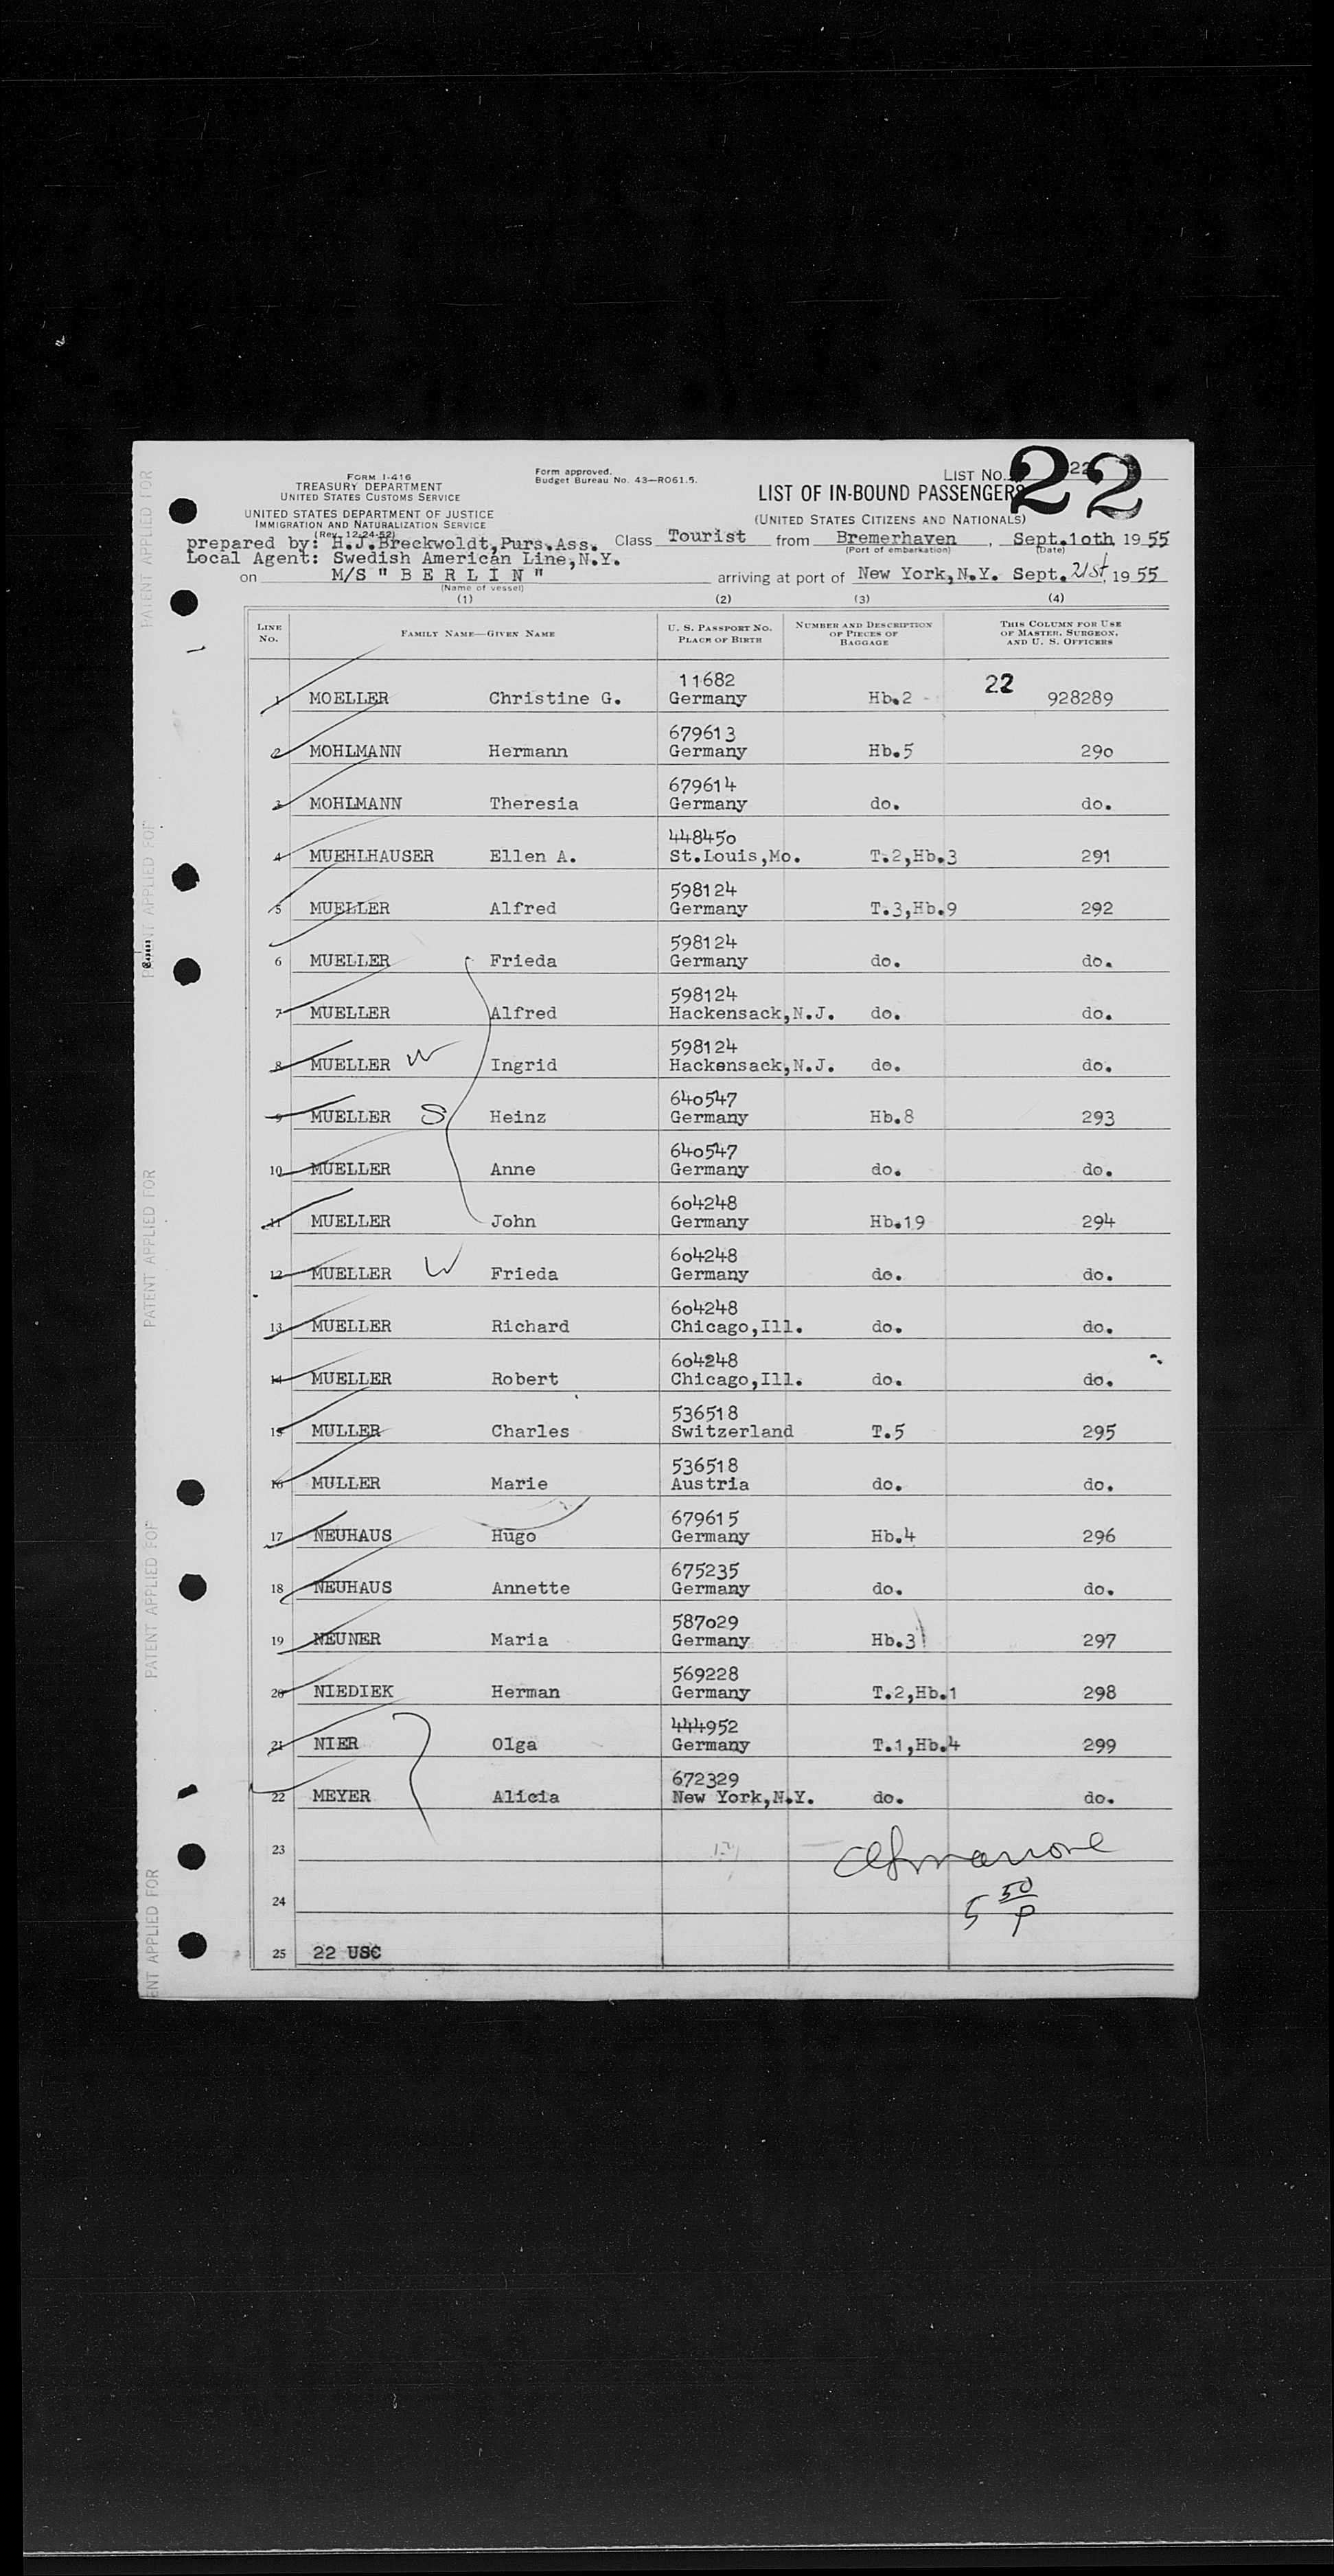 FORM I-416
TREASURY DEPARTMENT
UNITED STATES CUSTOMS SERVICE
UNITED STATES DEPARTMENT OF JUSTICE
IMMIGRATION AND NATURALIZATION SERVICE
(Rev. 12-24-52)
Form approved.
Budget Bureau No. 43—RO61.5.
LIST NO. 22
22
LIST OF IN-BOUND PASSENGERS
(UNITED STATES CITIZENS AND NATIONALS)
prepared by: H.J.Breckwoldt,Purs.Ass. Class Tourist from Bremerhaven, Sept.1oth 1955
(Port of embarkation) (Date)
Local Agent: Swedish American Line,N.Y.
on M/S " B E R L I N " arriving at port of New York,N.Y. Sept. 21st, 1955
(Name of vessel)
(1) (2) (3) (4)
LINE NO. FAMILY NAME—GIVEN NAME U. S. PASSPORT NO. PLACE OF BIRTH NUMBER AND DESCRIPTION OF PIECES OF BAGGAGE THIS COLUMN FOR USE OF MASTER, SURGEON, AND U. S. OFFICERS
11682 22
1 MOELLER Christine G. Germany Hb.2 928289
679613
2 MOHLMANN Hermann Germany Hb.5 29o
679614
3 MOHLMANN Theresia Germany do. do.
44845o
4 MUEHLHAUSER Ellen A. St.Louis,Mo. T.2,Hb.3 291
598124
5 MUELLER Alfred Germany T.3,Hb.9 292
598124
6 MUELLER Frieda Germany do. do.
598124
7 MUELLER Alfred Hackensack,N.J. do. do.
598124
8 MUELLER W Ingrid Hackensack,N.J. do. do.
64o547
9 MUELLER S Heinz Germany Hb.8 293
64o547
10 MUELLER Anne Germany do. do.
6o4248
11 MUELLER John Germany Hb.19 294
6o4248
12 MUELLER W Frieda Germany do. do.
6o4248
13 MUELLER Richard Chicago,Ill. do. do.
6o4248
14 MUELLER Robert Chicago,Ill. do. do.
536518
15 MULLER Charles Switzerland T.5 295
536518
16 MULLER Marie Austria do. do.
679615
17 NEUHAUS Hugo Germany Hb.4 296
675235
18 NEUHAUS Annette Germany do. do.
587o29
19 NEUNER Maria Germany Hb.3 297
569228
20 NIEDIEK Herman Germany T.2,Hb.1 298
444952
21 NIER Olga Germany T.1,Hb.4 299
672329
22 MEYER Alicia New York,N.Y. do. do.
23
24 5 50/P
25 22 USC
PATENT APPLIED FOR
PATENT APPLIED FOR
PATENT APPLIED FOR
PATENT APPLIED FOR
ENT APPLIED FOR